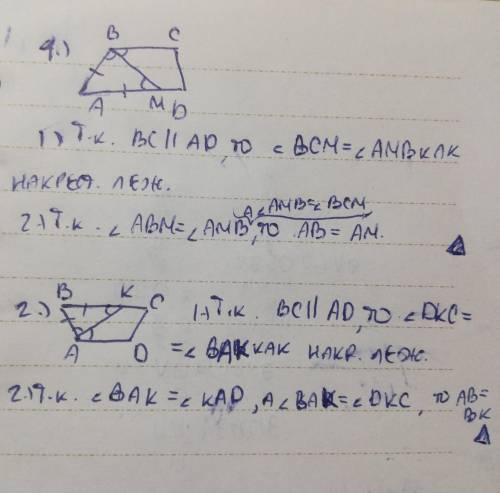 1.)
B C
A M D
1) Т.к. BC || AD, то ∠BCM = ∠AMB как
накрест. леж.
2.) Т.к. ∠ABM = ∠AMB, а ∠AMB = ∠BCM, то AB = AM.
2.)
B K C
A D
1.) Т.к. BC || AD, то ∠DKC =
= ∠BAK как накр. леж.
2.) Т.к. ∠BAK = ∠KAD, а ∠BAK = ∠DKC, то AB =
BK